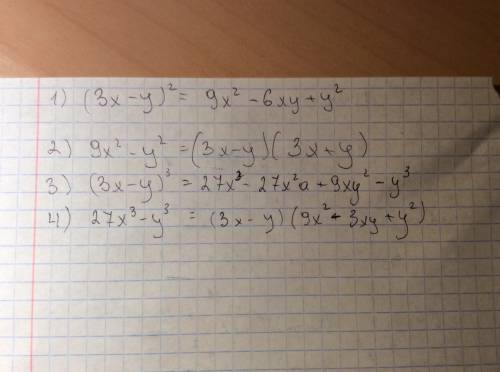 1) (3x-y)² = 9x² - 6xy + y²
2) 9x² - y² = (3x-y)(3x+y)
3) (3x-y)³ = 27x³ - 27x²a + 9xy² - y³
4) 27x³ - y³ = (3x-y)(9x² + 3xy + y²)